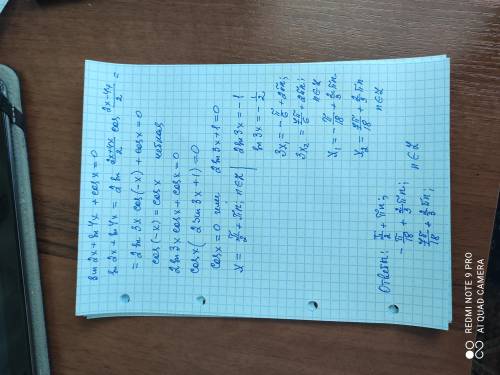 sin2x + sin4x + cosx = 0
sin2x + sin4x = 2 sin (2x+4x)/2 cos (2x-4x)/2 =
= 2 sin 3x cos(-x) + cosx = 0
cos(-x) = cosx четная
2 sin 3x cosx + cosx = 0
cosx ( 2 sin 3x + 1 ) = 0
cosx = 0 или 2 sin 3x + 1 = 0
x = π/2 + πn; n∈Z | 2 sin 3x = -1
sin 3x = - 1/2
3x₁ = - π/6 + 2πn;
3x₂ = 7π/6 + 2πn; n∈Z
x₁ = - π/18 + 2/3 πn
x₂ = 7π/18 + 2/3 πn n∈Z
Ответ: π/2 + πn;
- π/18 + 2/3 πn; n∈Z
7π/18 + 2/3 πn;
REDMI NOTE 9 PRO
AI QUAD CAMERA